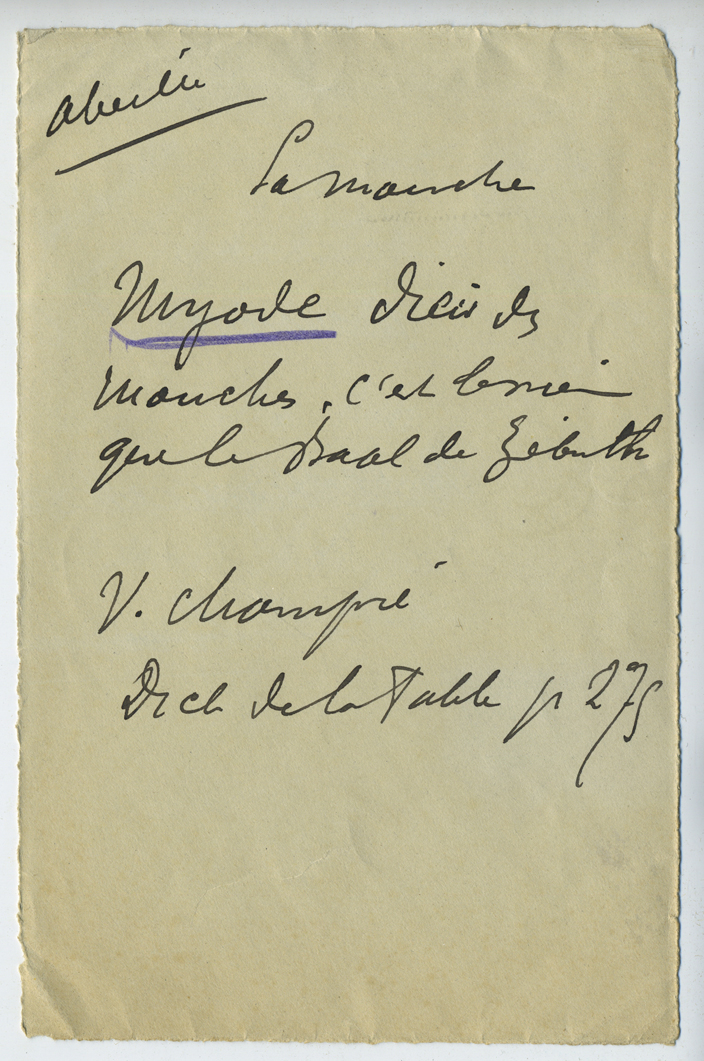 abeille
La mouche
Myode dieu des
mouches, c'est le même
que le Baal de Zébuth
V. Chompré
Dict de la Fable p 275